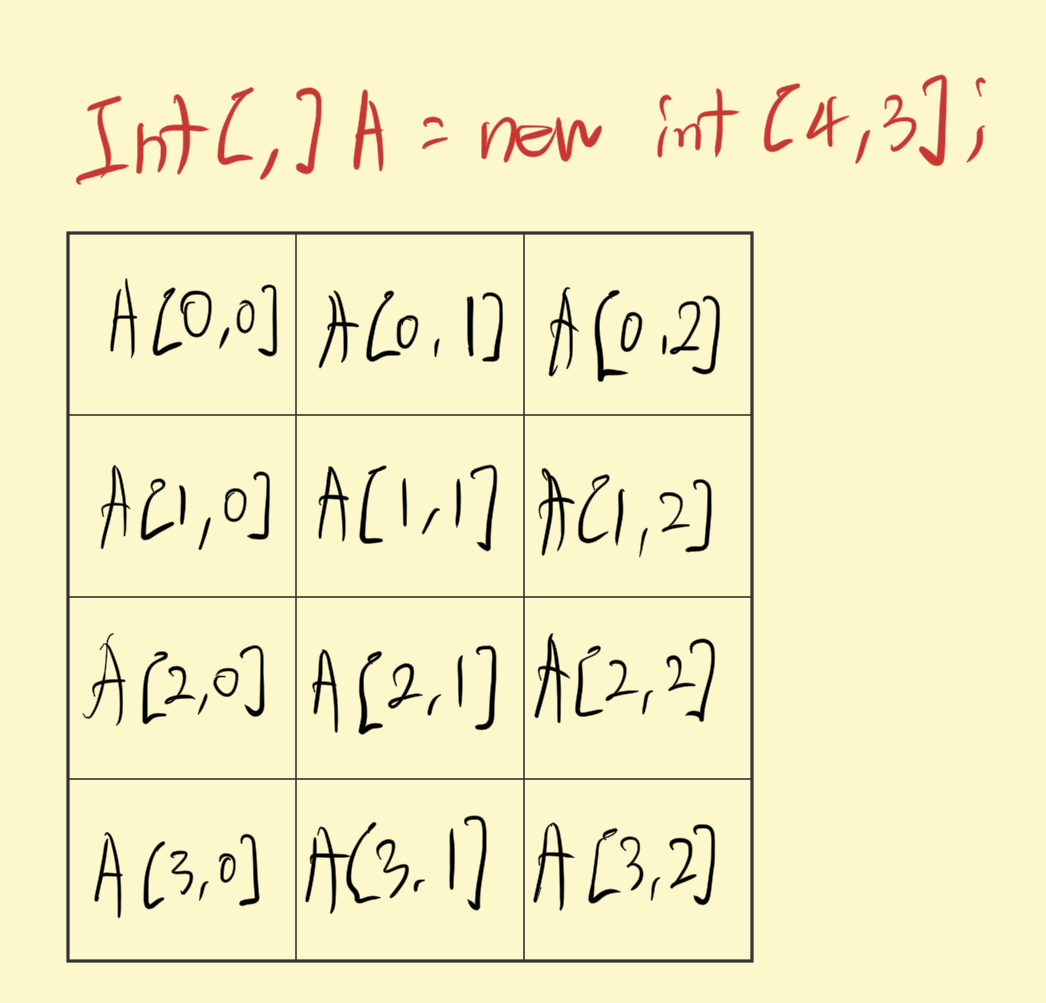 Int[,] A = new int [4,3];
A[0,0] A[0,1] A[0,2]
A[1,0] A[1,1] A[1,2]
A[2,0] A[2,1] A[2,2]
A[3,0] A[3,1] A[3,2]